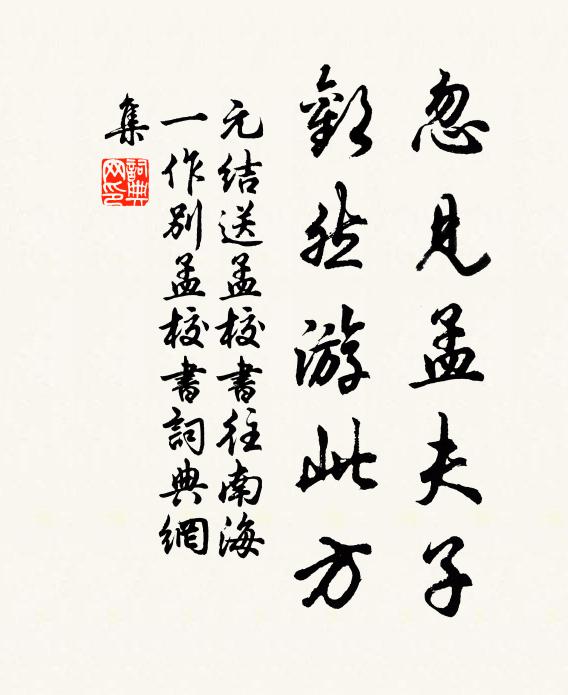 忽見孟夫子
歡然游此方
元結送孟校書往南海
一作別孟校書詞典網
集
詞典網印